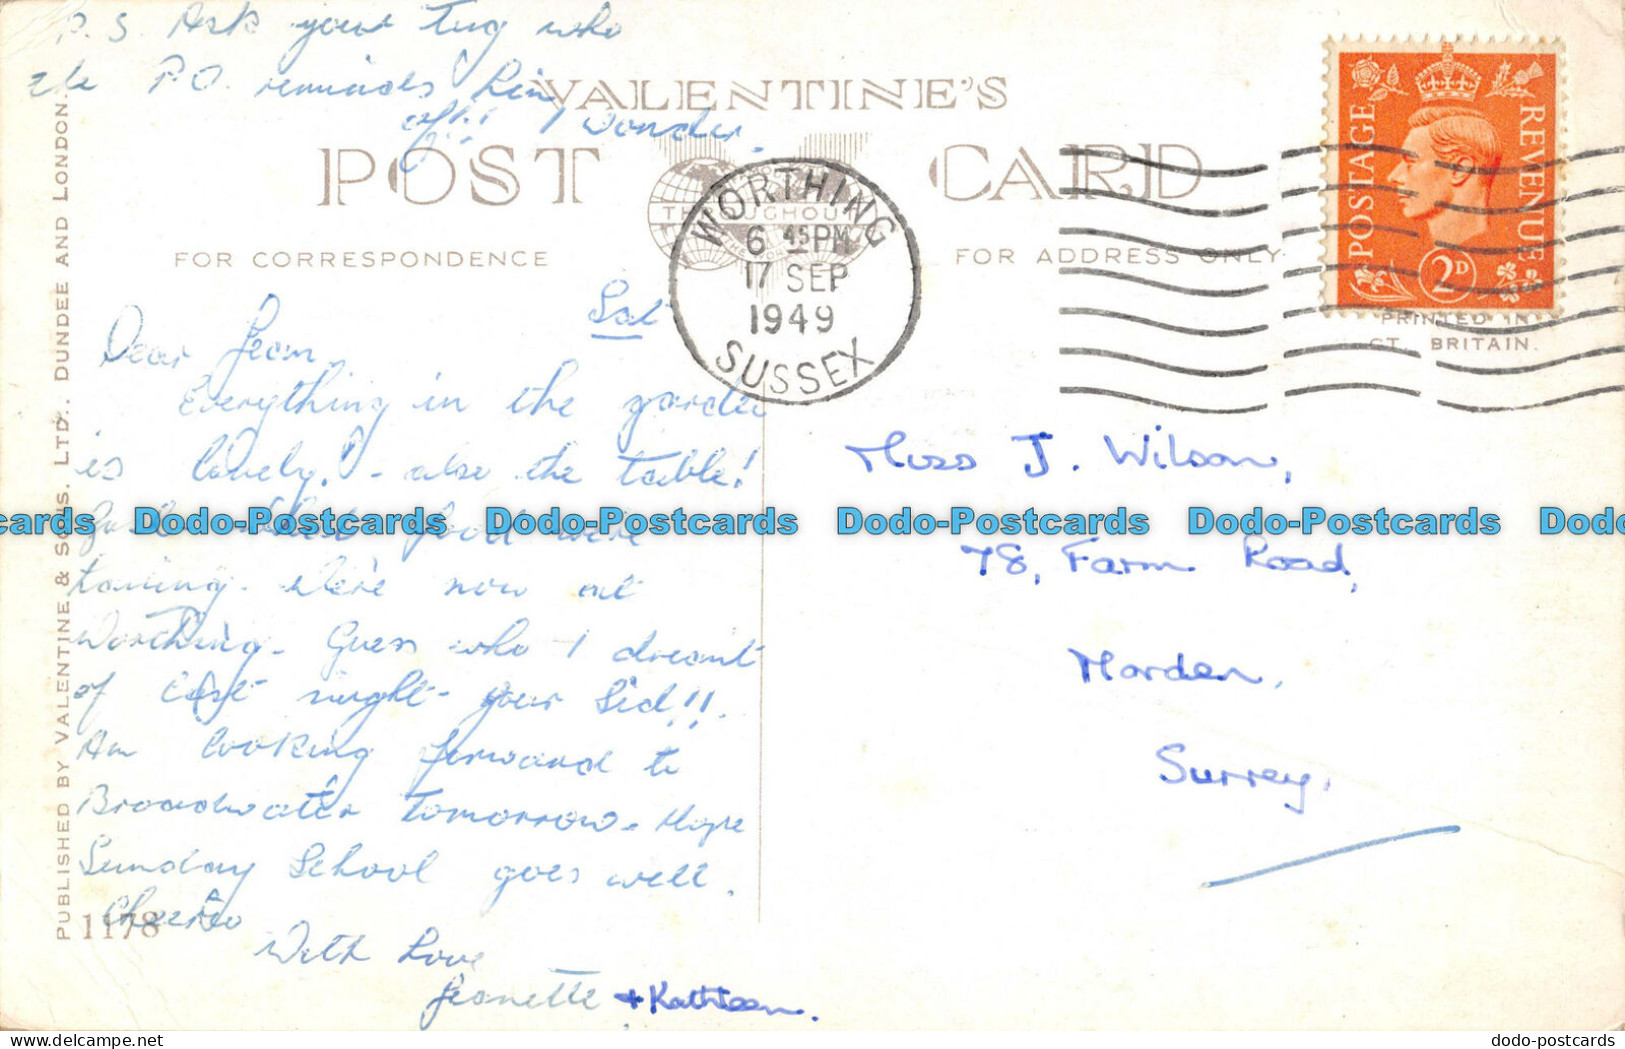 P.S. Ask your Tug who
the P.O. reminds him
of!! I wonder.
VALENTINE'S
POST CARD
THROUGHOUT
FOR CORRESPONDENCE
FOR ADDRESS ONLY
WORTHING
6 45 PM
17 SEP
1949
SUSSEX
POSTAGE
REVENUE
2D
PRINTED IN
GT. BRITAIN.
Sat
Dear Jean,
Everything in the garden
is lovely! - also the table!
food we're
having. We're now at
Worthing. Guess who I dreamt
of last night - your Sid!!
Am looking forward to
Broadwater tomorrow. Hope
Sunday School goes well.
Cheerio
With Love
Jeanette + Kathleen.
Miss J. Wilson,
78, Farm Road,
Morden,
Surrey.
PUBLISHED BY VALENTINE & SONS, LTD., DUNDEE AND LONDON.
1178
Dodo-Postcards Dodo-Postcards Dodo-Postcards Dodo-Postcards
dodo-postcards